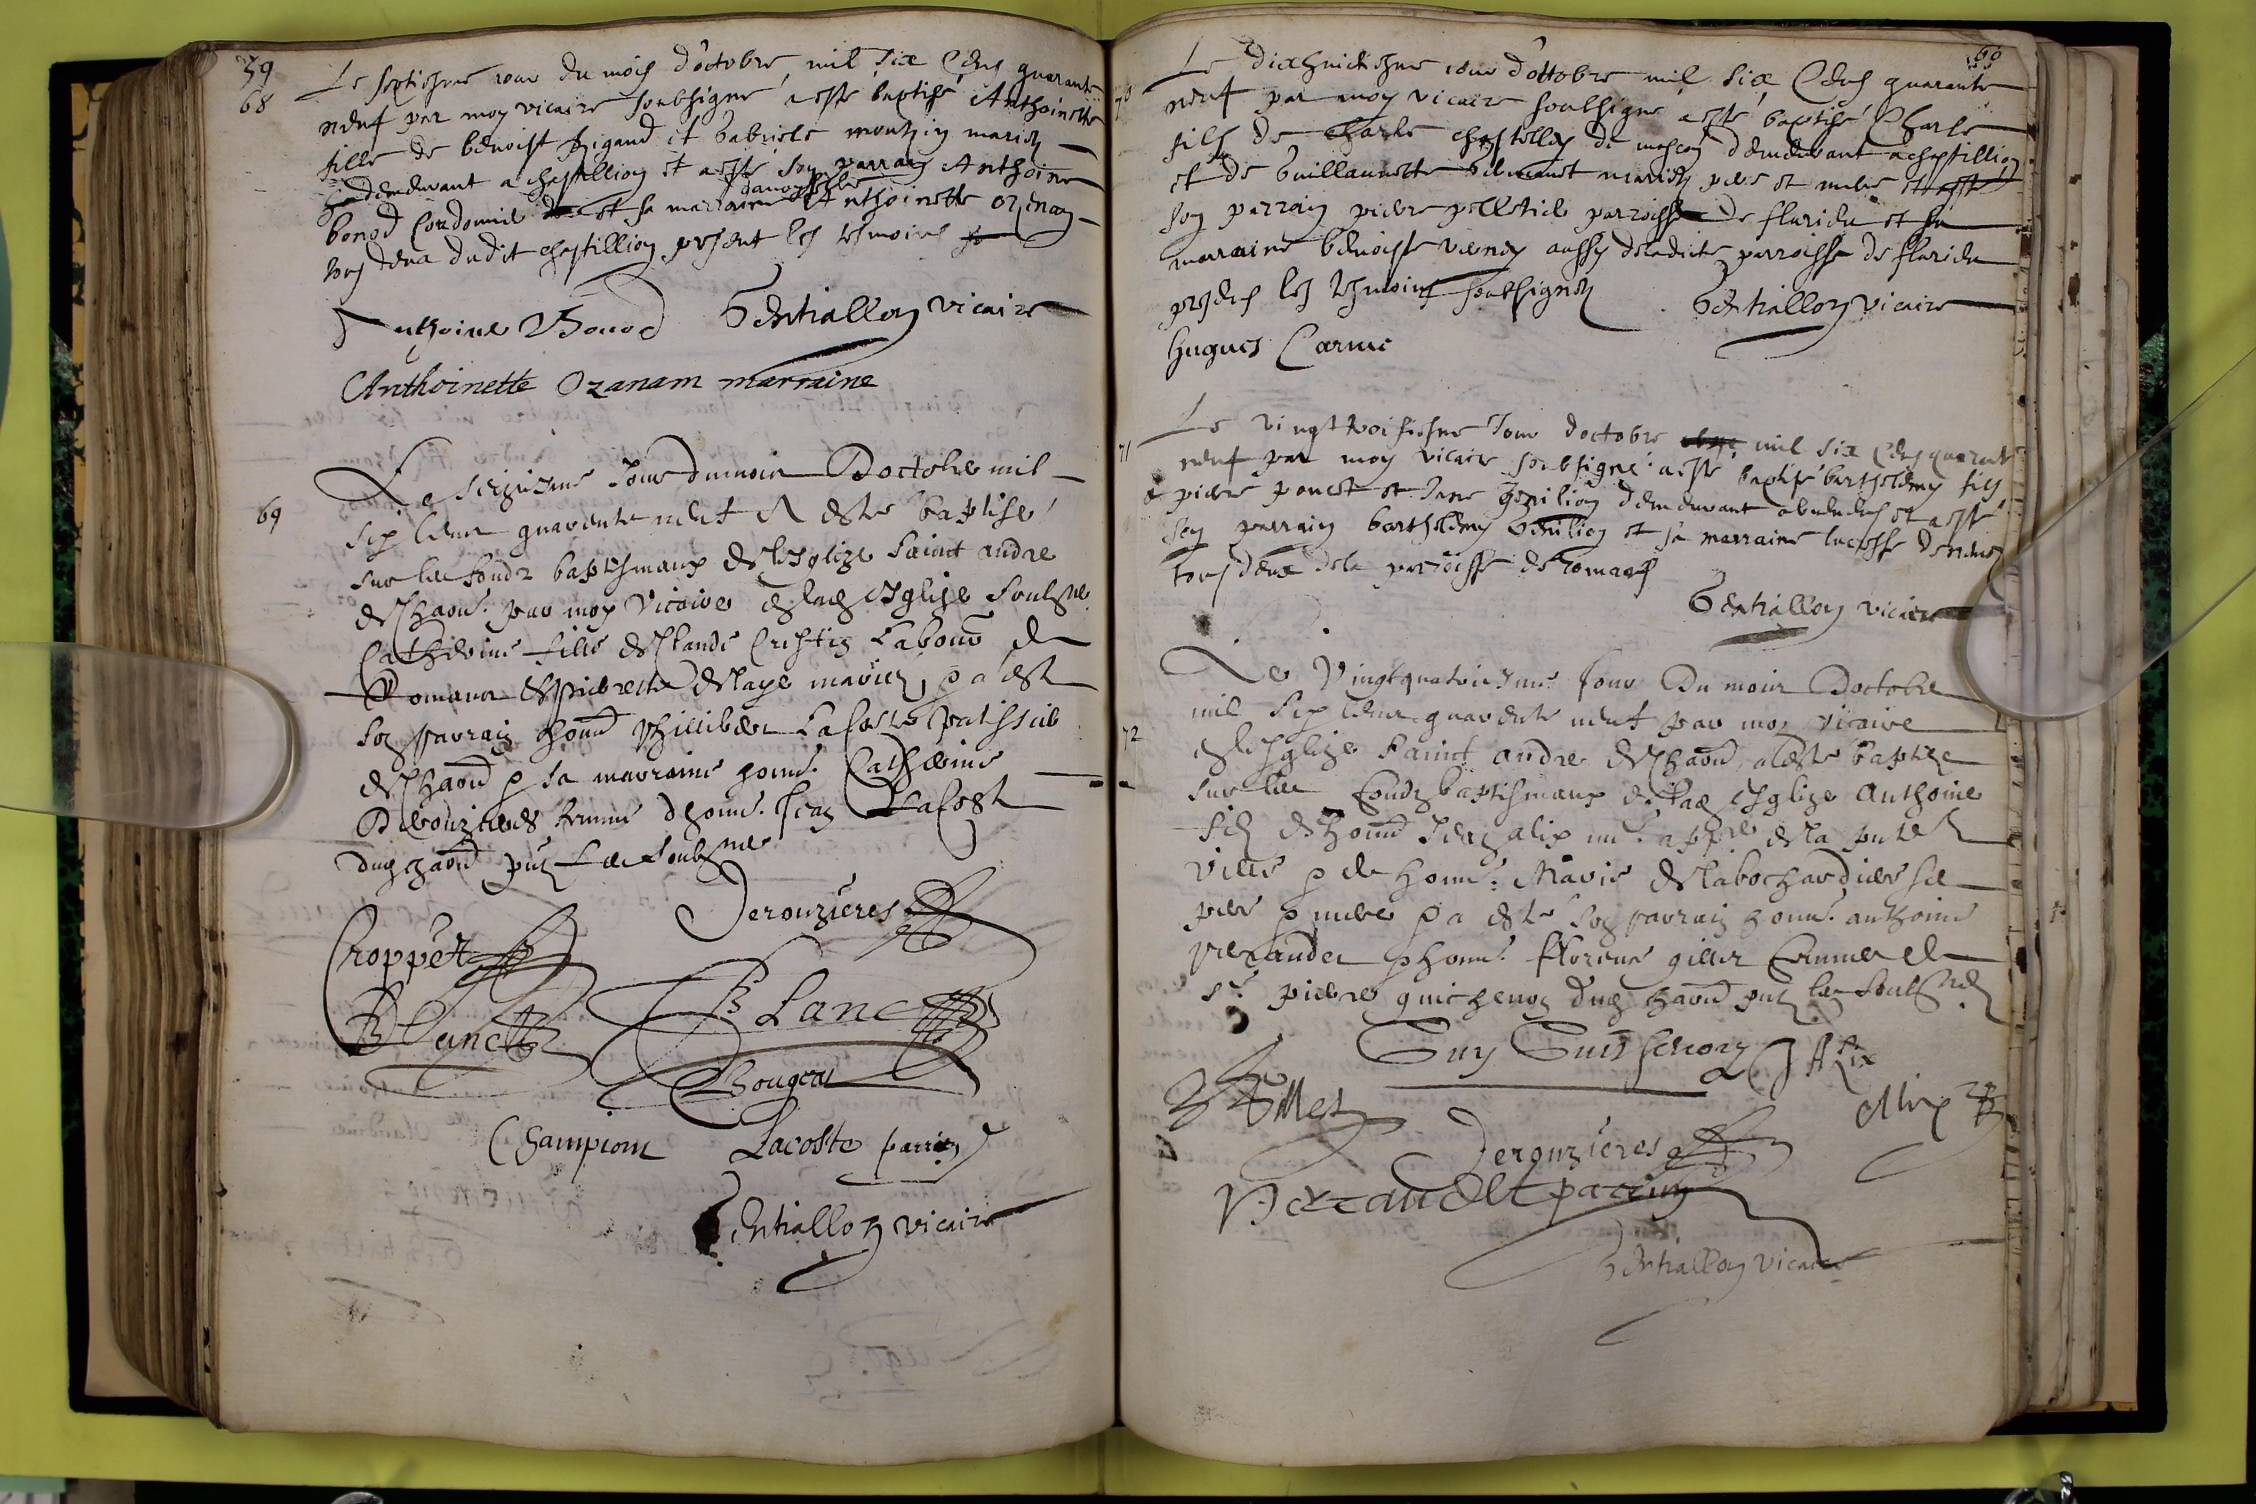 59
68
Le septiesme jour du mois d'octobre mil six cens quarante
neuf par moy vicaire soubsigne a esté baptisé Anthoinette
fille de benoist Rigaud et Gabriele mariez
demeurant a chastillion et a esté son parrain Anthoine
damoyselle
bonod Cordonnie et sa marraine Anthoinette Ozenan
tous deux dudit chastillion present les tesmoins
Anthoine Bonod Gentiallon vicaire
Anthoinette Ozanam marraine
69
Le seiziesme Jour du mois D'octobre mil
six cens quarente neuf A este baptisé
sur les fondz baptismaux de l'Eglize Saint andre
de Chaon. par moy Vicaire en lad Eglize soubsne
Catherine fille de Claude Labour de
Romans et pierrette Delaye mariez, & a est
son parrain honn Phillibert Lacoste patissie
de Chaon & sa marraine honn. Catherine
Derouzieres femme d'honn. Jean Lacoste
dud chaon pnt Les soubsnes
Derouzieres
Croppet
Blanc
B Lanc
Bougeat
Championt Lacoste parrin
Gentiallon vicaire
60
70
Le dixhuictiesme jour d'ottobre mil six cens quarante
neuf par moy vicaire soubsigne a esté baptisé Charle
fils de Charle chastellen de mascon demeurant a chastillion
et de Guillaumette mariez pere et mere et esté
son parrain pierre pelletier parroisse de flurieu et sa
marraine benoiste aussy de ladicte parroisse de flurieu
presens les tesmoins soubsignez Gentiallon vicaire
hugues Carme
71
Le vingt troisiesme Jour d'octobre mil six cens quarante
neuf par moy vicaire soubsigné a esté baptisé bartholemy fils
a pierre poncet et Jane Genilion demeurant et a esté
son parrain bartholemy Genilion et sa marraine
tous deux de la parroisse de romans
Gentiallon vicaire
72
Le Vingtquatriesme Jour Du mois D'octobre
mil six cens quarente neuf par moy vicaire
en l'Eglize Saint andre de Chaon, a este baptize
sur les fondz baptismaux de lad Eglize Anthoine
filz de honn Jean alix me app.re de la pnte
ville & de honne. Marie De labochardiere ses
pere & mere & a este son parrain honn. anthoine
verandet & honn. florence gillet femme de
Sr. pierre guichenon dud chaon pnt les soubsnez
Guy Guichenon J Alix
Gillet Alix
Derouzieres
Verrandet parrin
Gentiallon vicaire